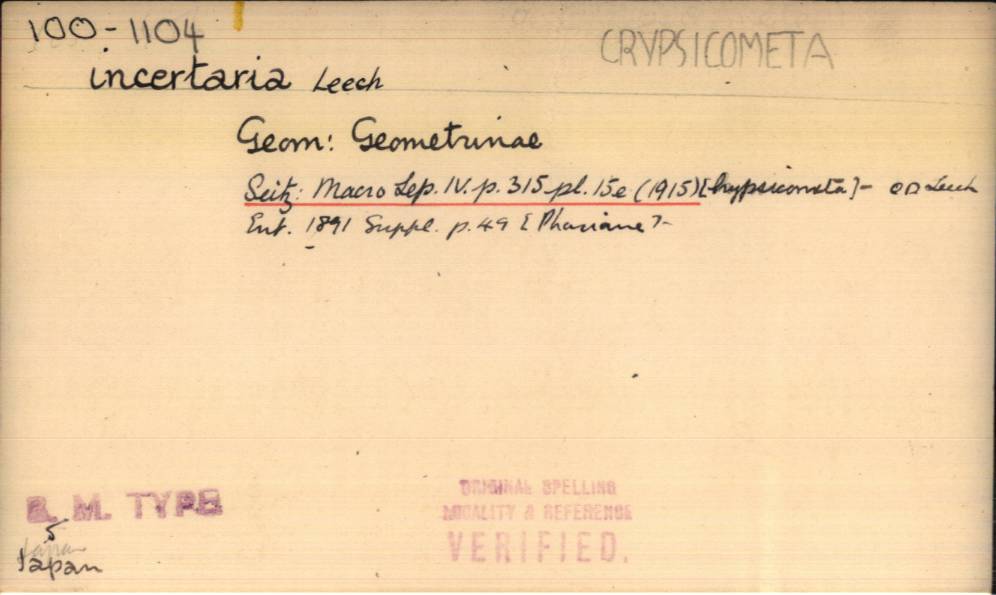 100-1104
CRYPSICOMETA
incertaria Leech
Geom: Geometrinae
Seitz: Macro Lep. IV. p. 315 pl. 15e (1915) [Crypsicometa] -
Leech
Ent. 1891 Suppl. p. 49 [Phasiane] -
B. M. TYPE
ORIGINAL SPELLING
LOCALITY & REFERENCE
VERIFIED.
Japan